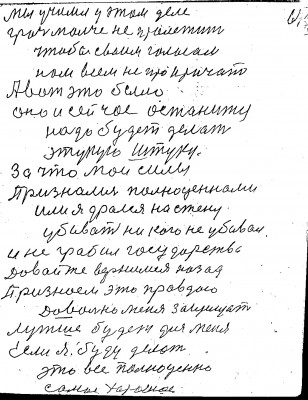 мы учимся у этом деле
грач молче не пролетит
чтоба своим голосам
нам всем не про кричат
А вот это було
оно и сей час
надо будет делат
штуку.
За что мои силы
Признался полноценными
или я дрался на стену
убиват ни кого не убивал
и не грабил государства
Довайте вернимся назад
Признаем это правдою
меня защищат
лутше будет для меня
Если я буду делат
это все полноценно
самое хорошое